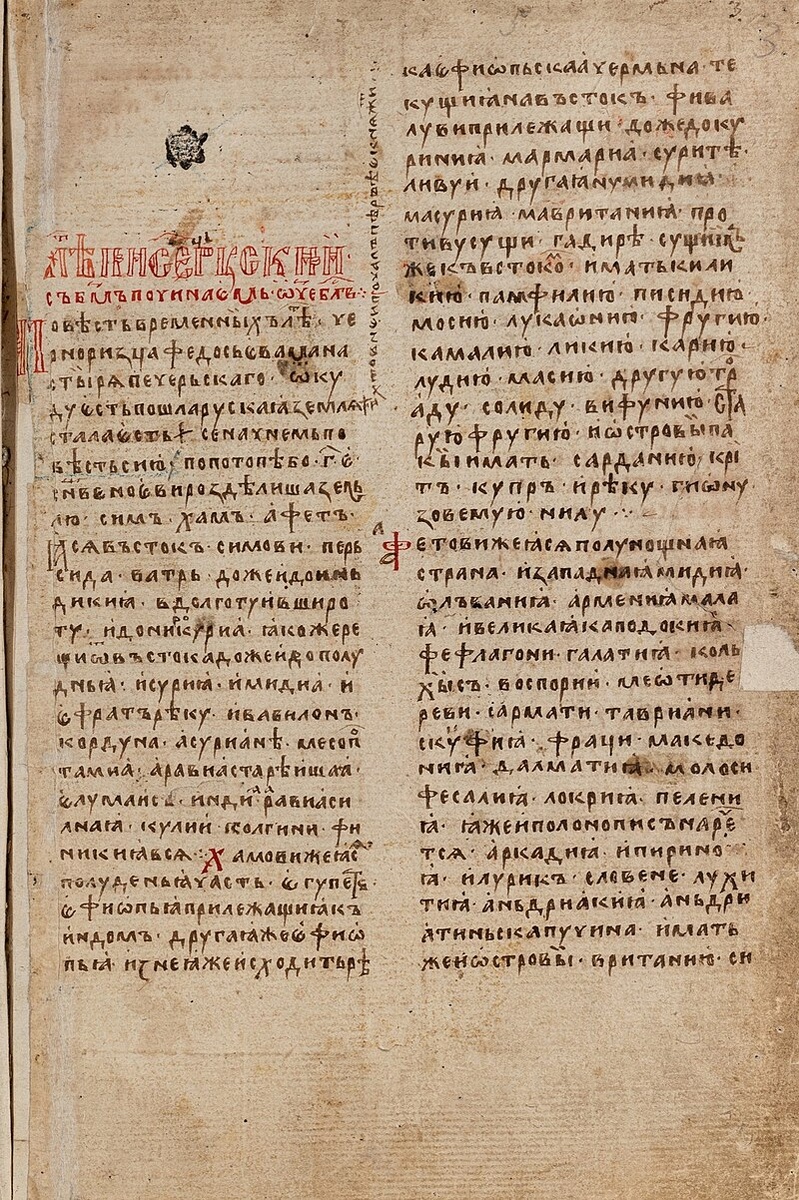 3
лѣⷮписець роускии·
съ бг҃мъ починаємь ѿч҃е бл҃ⷭв·:·
Повѣсть временныхъ лѣⷮ· че
рноризца федосьєва мана
стырѧ печерьскаго· ѿку
ду єсть пошла рускаꙗ земля
стала єсть· се начнемь по
вѣсть сию· по потопѣ бо· г҃· є
сн҃ве ноєви роздѣлиша земь
лю· симъ· хамъ· афетъ·
Ꙗсѧ въстокъ· симови· перь
сида· ватрь· доже и до инь
дикиꙗ· в долготу и в широ
ту· и до никурⷪиꙗ· ꙗкоже ре
щи ѿ въстока доже и до полу
дньꙗ· и суриꙗ· и мидиа· и
єфратъ рѣку· и вавилонъ·
кордуна· асуриꙗнѣ· месопⷪ
тамиа· аравиа старѣишаꙗ·
єлумаисъ· инди· равиа си
лнаꙗ· кулии· колгини· фи
никиꙗ всѧ·:· Хамови же ꙗсⷮѧ
полуденьꙗ часть· єгупеⷮтъ·
єфиѡпьꙗ прилежащиꙗ къ
индомъ· другаꙗ же єфиѡ
пьꙗ· из неꙗже исходить рѣ
ка єфиѡпьскаꙗ чермьна· те
кущиꙗ на въстокъ· фива
луви прилежащи· доже до ку
риниꙗ· мармариа· сурите·
ливуи· другаꙗ нумидиꙗ·
масуриꙗ· мавританиꙗ· про
тиву сущи· гадирѣ· сущиⷯмъ
же къ востокоⷨ· имать кили
кию· памфилию· писидию
мосию· лукаѡнию· фругию·
камалию· ликию· карию·
лудию· масию· другую трⷪ
аду· солиду· вифунию· ста
рую фругию· и ѡстровы па
кы имать· сарданию· кри
тъ· купръ· и рѣку· гиѡну
зовемую· нилъ·:·
Афетови же ꙗсѧ полунощнаꙗ
страна· и западнаꙗ· мидиꙗ·
ѡлъваниꙗ· армениꙗ мала
ꙗ· и великаꙗ· каподокиꙗ·
фефлагони· галатиꙗ· коль
хысъ· воспории· меѡти· де
реви· сармати· тавриани·
скуфиꙗ· фраци· македо
ниꙗ· далматиꙗ· молоси
фесалиꙗ· локриꙗ· пелени
ꙗ· ꙗже и полопонисъ нареⷱ
тсѧ· аркадиꙗ· и пирино
ꙗ· илурикъ· словене· лухи
тиꙗ· аньдриакиꙗ· аньдри
атиньска пучина· имать
же и ѡстровы· вританию· си